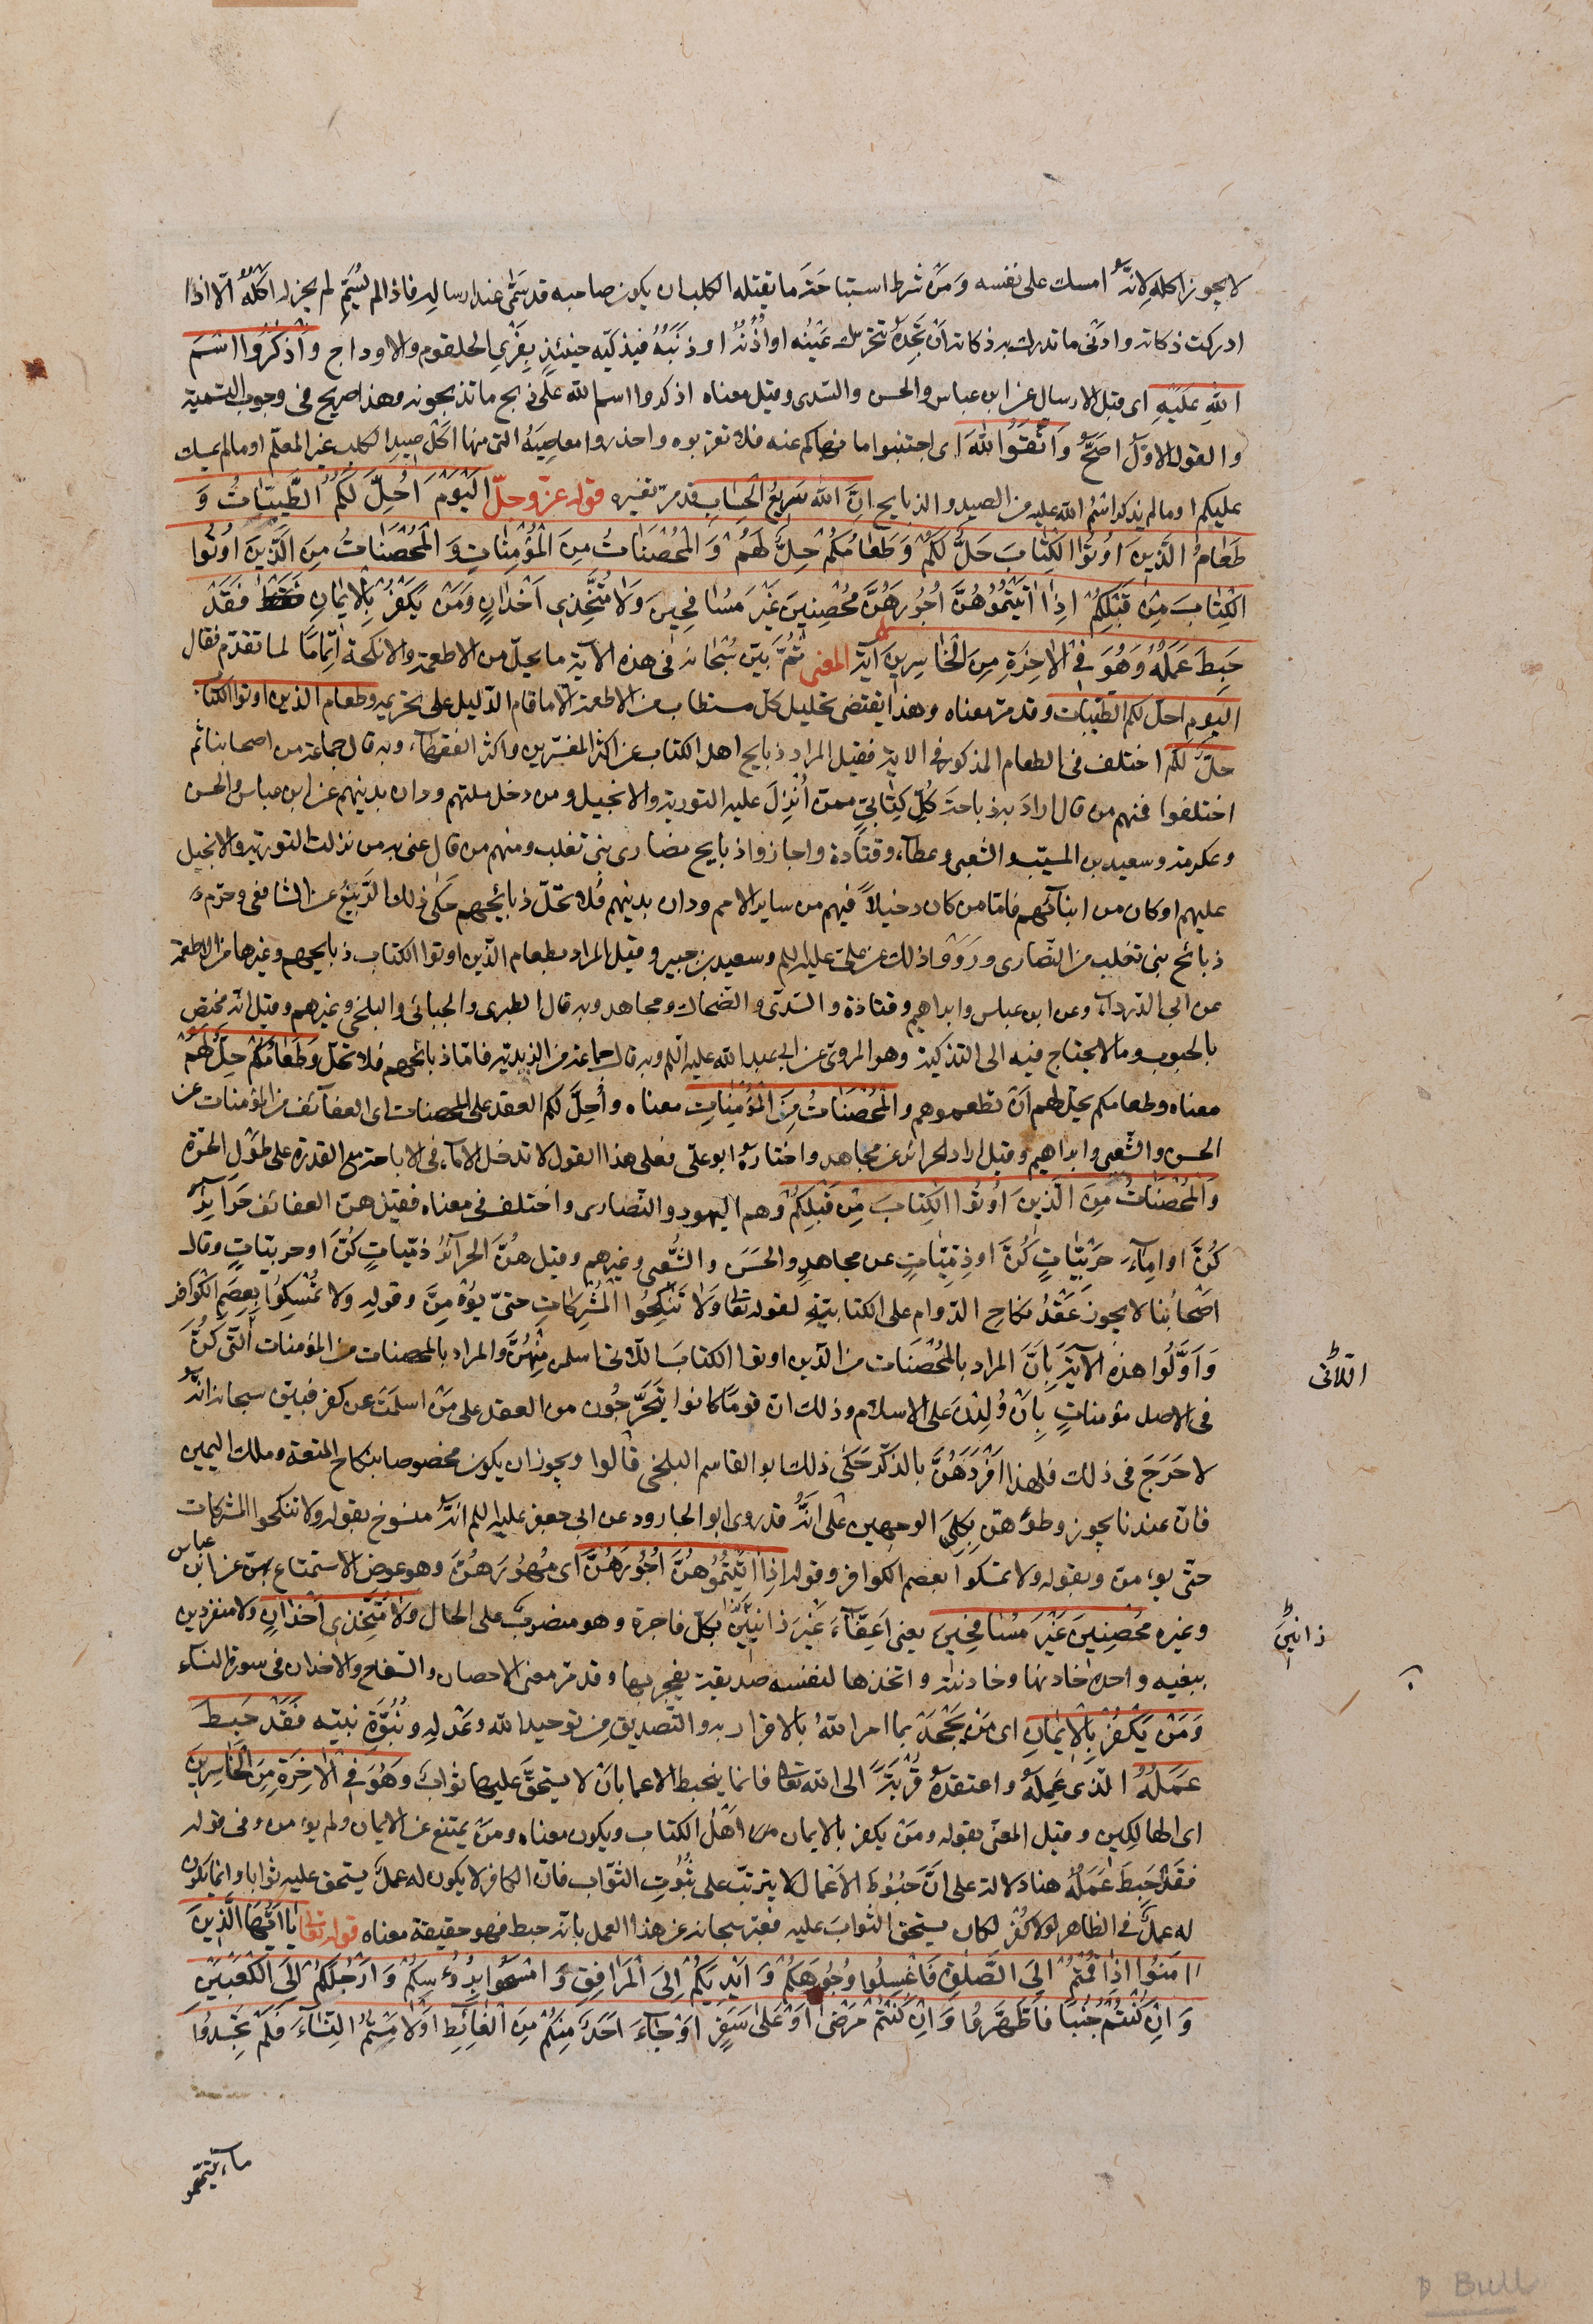 لا يجوز اكله لانه امسك على نفسه وَمن شرط استباحَة ما يقتله الكلب ان يكون صاحبه قد سمّى عند ارساله فاذا لم يُسَمّ لم يجز له اكلُه الّا اذا
ادركت ذكاته وادنى ما تدرك به ذكاته اَن تَجِدهُ تتحرك عَيْنُه او اُذُنُه او ذَنَبُهُ فيذكيّه حينئذٍ بِفَرْيِ الحلقوم والاوداج وَاذكُرُوا اسْمَ
اللهِ عَلَيهِ اى قبل الارسال عن ابن عباس والحسن والسّدى وقيل معناه اذكروا اسم الله على ذبح ما تذبحونه وهذا صريح فى وجوب التسمية
والقول الاوّل اصَحُّ وَاتَّقوُا اللهَ اى اجتنبوا ما نهاكم عنه فلا تقربوه واحذروا معاصِيَهُ التى منها اكل صيد الكلب غير المعلّم او ما لم يمسك
عليكم او ما لم يذكر اسْمُ الله عليه من الصيد والذبايح اِنَّ اللهَ سَرِيعُ الحِسَابِ قد مرّ تفسيره قوله عزّ وجلّ اليَوْمَ اُحِلَّ لَكُمُ الطَّيِّبَاتُ وَ
طَعَامُ الَّذِينَ اُوتُوا الكِتَابَ حِلٌّ لَكُمْ وَطَعَامُكُمْ حِلٌّ لَهُمْ وَالمُحْصَنَاتُ مِنَ المُؤْمِنَاتِ وَالمُحْصَنَاتُ مِنَ الَّذِينَ اُوتُوا
الكِتَابَ مِن قَبْلِكُمْ اِذَا اٰتَيْتُمُوهُنَّ اُجُورَهُنَّ مُحْصِنِينَ غَيْرَ مُسَافِحِينَ وَلَا مُتَّخِذِى اَخْدَانٍ وَمَنْ يَكْفُرْ بِالايمَانِ فَقَدْ
حَبِطَ عَمَلُهُ وَهُوَ فِى الاخِرَةِ مِنَ الخَاسِرِينَ آية المعنى ثُمَّ بيّن سُبْحَانه فى هذه الآية ما يحلّ من الاطعمة والانكحة اِتماماً لما تقدّم فقال
اليوم احلّ لكم الطيّبات وقد مرّ معناه وهذا يقتضى تحليل كل مستطاب من الاطعمة الّا ما قام الدّليل على تحريمه وطعام الذين اوتوا الكتاب
حلّ لكم اختلف فى الطعام المذكور فى الاية فقيل المراد ذبايح اهل الكتاب عن اكثر المفسّرين واكثر الفقهاء وبه قال جماعة من اصحابنا ثم
اختلفوا فمنهم من قال اراد به ذباحة كلّ كِتابىّ ممن اُنْزِلَ عليه التورية والانجيل ومن دخل ملتهم ودان بدينهم عن ابن عباس والحسن
وعكرمة وسعيد بن المسيّب والشعبى وعطاء وقتادة واجازوا ذبايح نصارى بنى تغلب ومنهم من قال عنى به من نزلت التورية والانجيل
عليهم او كان من ابنائهم فامّا من كان دخيلاً فيهم من ساير الامم ودان بدينهم فلا تحلّ ذبائحهم حَكى ذلك الرَّبيعُ عن الشافعى وحرّم
ذبائح بنى تغلب من النّصارى ورَوَوْا ذلك عن علىّ عليه السلم وسعيد بن جبير وقيل المراد بطعام الّذين اوتوا الكتاب ذبايحهم وغيرها من الاطعمة
عن ابى الدرداء وعن ابن عباس وابراهيم وقتادة والسّدّى والضّحاك ومجاهد وبه قال الطبرى والجبائى والبلخى وغيرهم وقيل انّه مختص
بالحبوب وما لا يحتاج فيه الى التذكية وهو المروىّ عن ابى عبد الله عليه السّلم وبه قال جماعة من الزيدية فامّا ذبائحهم فلا تحلّ وَطَعَامُكُمْ حِلّ لهُمْ
معناه وطعامكم يحلّ لهم اَنْ تطعموهم وَالْمُحْصَنَاتُ مِنَ المُؤْمِنَاتِ معناه واُحِلَّ لكم العقد على المحصنات اى العفائف من المؤمنات عن
الحسن والشّعبى وابراهيم وقيل اراد الحرائر عن مجاهد واختاره ابو علىّ فعلى هذا القول لا تدخل الاماء فى الاباحة مع القدرة على طَوْل الحُرّة
وَالمُحْصَنَاتُ مِنَ الَّذِينَ اُوتُوا الكِتَابَ مِن قَبْلِكُمْ وهم اليهود والنّصارى واختلف فى معناه فقيل هنّ العفائف حَرَائِرَ
كُنَّ او اِماءً حَرْبِيّاتٍ كُنَّ او ذِمّيّاتٍ عن مجاهدٍ والحَسَن والشُّعبى وغيرهم وقيل هُنَّ الحرآئرُ ذمّيّاتٍ كُنَّ او حربيّاتٍ وقال
اصْحابُنا لا يجوز عَقْدُ نكاحِ الدّوام على الكتابيّة لقوله تعالى وَلَا تَنْكِحُوا المُشْرِكَاتِ حتىّ يؤمِنَّ وقوله ولا تُمْسِكُوا بِعِصَمِ الْكَوَافِر
وَاَوَّلُوا هذِهِ الآيَةَ بِاَنَّ المراد بالمُحْصَنَات من الّذين اوتوا الكتابَ اللّاتى اسلمن مِنْهُنَّ والمراد بالمحصنات من المؤمنات اللّتى كُنَّ
فى الاصل مؤمناتٍ بِاَنْ وُلِدْنَ على الاسلام وذلك انّ قومًا كانوا يَتَحَرَّجُون من العقد على مَنْ اسلَمَت عن كفرٍ فبيّن سبحانه انّه
لا حَرَجَ فى ذلك فلهذا اَفْرَدَهُنَّ بالذّكر حَكى ذلك ابو القاسم البلخى قالوا ويجوز ان يكون مخصوصا بنكاح المتعة وملك اليمين
فانّ عندنا يجوز وطؤهنّ بِكِلَى الوجهين على انَّهُ قد روى ابو الجارود عن ابى جعفر عليه السلم انّه منسوخ بقوله ولا تنكحوا المشركات
حتى يؤمنّ وبقوله ولا تمسكوا بعصم الكوافر وقوله اِذَا اٰتَيْتُمُوُهُنَّ اُجُورَهُنَّ اى مُهُورَهُنَّ وهو عوض الاستمتاع بهنّ عن ابن عباس
وغيره مُحْصِنِينَ غَيْرَ مُسَافِحِينَ يعنى اَعِفّآءَ غَيْرَ زانِينَ بكلّ فاجرة وهو منصوبٌ على الحال وَلَا مُتَّخِذِى اَخْدَانٍ ولا متفرّدين
ببغيه واحدة خادنها وخادنته واتخذها لنفسه صديقة يفجر بها وقد مرّ معنى الاحصان والسّفاح والاخدان فى سورة النساء
وَمَنْ يَكْفُرْ بِالايمَانِ اى مَن يَجْحَدْ بما امر اللهُ بالاقرار به والتصديق من توحيد الله وعَدْلِهِ ونُبُوَّةِ نبيّه فَقَدْ حَبِطَ
عَمَلُهُ الّذى عَمِلَهُ واعتقدهُ قُرْبَةً الى الله تعالى فانما ينحبط الاعمال بان لا يستحقّ عليها ثوابٌ وَهُوَ فِى الاخِرَةِ مِنَ الخَاسِرِينَ
اى الهالكين وقيل المعنى بقوله ومَنْ يكفر بالايمان من اَهْلُ الكتاب ويكون معناه ومَنْ يمتنع عن الايمان ولم يؤمن وفى قوله
فَقَدْ حَبِطَ عَمَلُهُ هنا دلالة على اَنَّ حُبُوطَ الاَعْمال لا يترتّب على ثُبُوتِ الثّواب فانّ الكافر لا يكون له عملٌ يستحق عليه ثوابا وانما يكون
له عملٌ فى الظاهر لولا كُفْره لكان يستحق الثوابَ عليه فعبّر سبحانه عن هذا العمل بانّه حبط فهو حقيقة معناه قوله تعالى يَا اَيُّهَا الَّذِينَ
اٰمَنُوا اِذَا قُمْتُمْ اِلَى الصَّلوةِ فَاغْسِلُوا وُجُوهَكُمْ وَاَيْدِيَكُمْ اِلَى المَرَافِقِ وَامْسَحُوا بِرُءُوسِكُمْ وَاَرْجُلَكُمْ اِلَى الكَعْبَيْنِ
وَاِنْ كُنْتُمْ جُنُبًا فَاطَّهَّرُوا وَاِنْ كُنْتُمْ مَرْضَى اَوْ عَلى سَفَرٍ اَوْ جَآءَ اَحَدٌ مِنْكُمْ مِنَ الغَائِطِ اَوْ لَامَسْتُمُ النِّسَآءَ فَلَمْ تَجِدُوا
اللّاتى
زانينَ
ماء فتيمّموا
D Bull